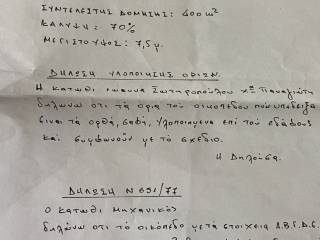 ΣΥΝΤΕΛΕΣΤΗΣ ΔΟΜΗΣΗΣ: 400 m²
ΚΑΛΥΨΗ: 70%
ΜΕΓΙΣΤΟ ΥΨΟΣ: 7,5 μ.
ΔΗΛΩΣΗ ΥΛΟΠΟΙΗΣΗΣ ΟΡΙΩΝ.
Η κατωθι Ιωαννα Σωτηροπούλου χας Παναγιώτη
δηλώνω οτι τα ορια του οικοπέδου που υπέδειξα
ειναι τα ορθά, σαφή, υλοποιημένα επί του εδάφους
και συμφωνούν με το σχεδιο.
Η Δηλούσα.
ΔΗΛΩΣΗ Ν 651/77
Ο κατωθι μηχανικός
δηλώνω οτι το οικόπεδο με τα στοιχεια Α.Β.Γ.Δ.Ε.